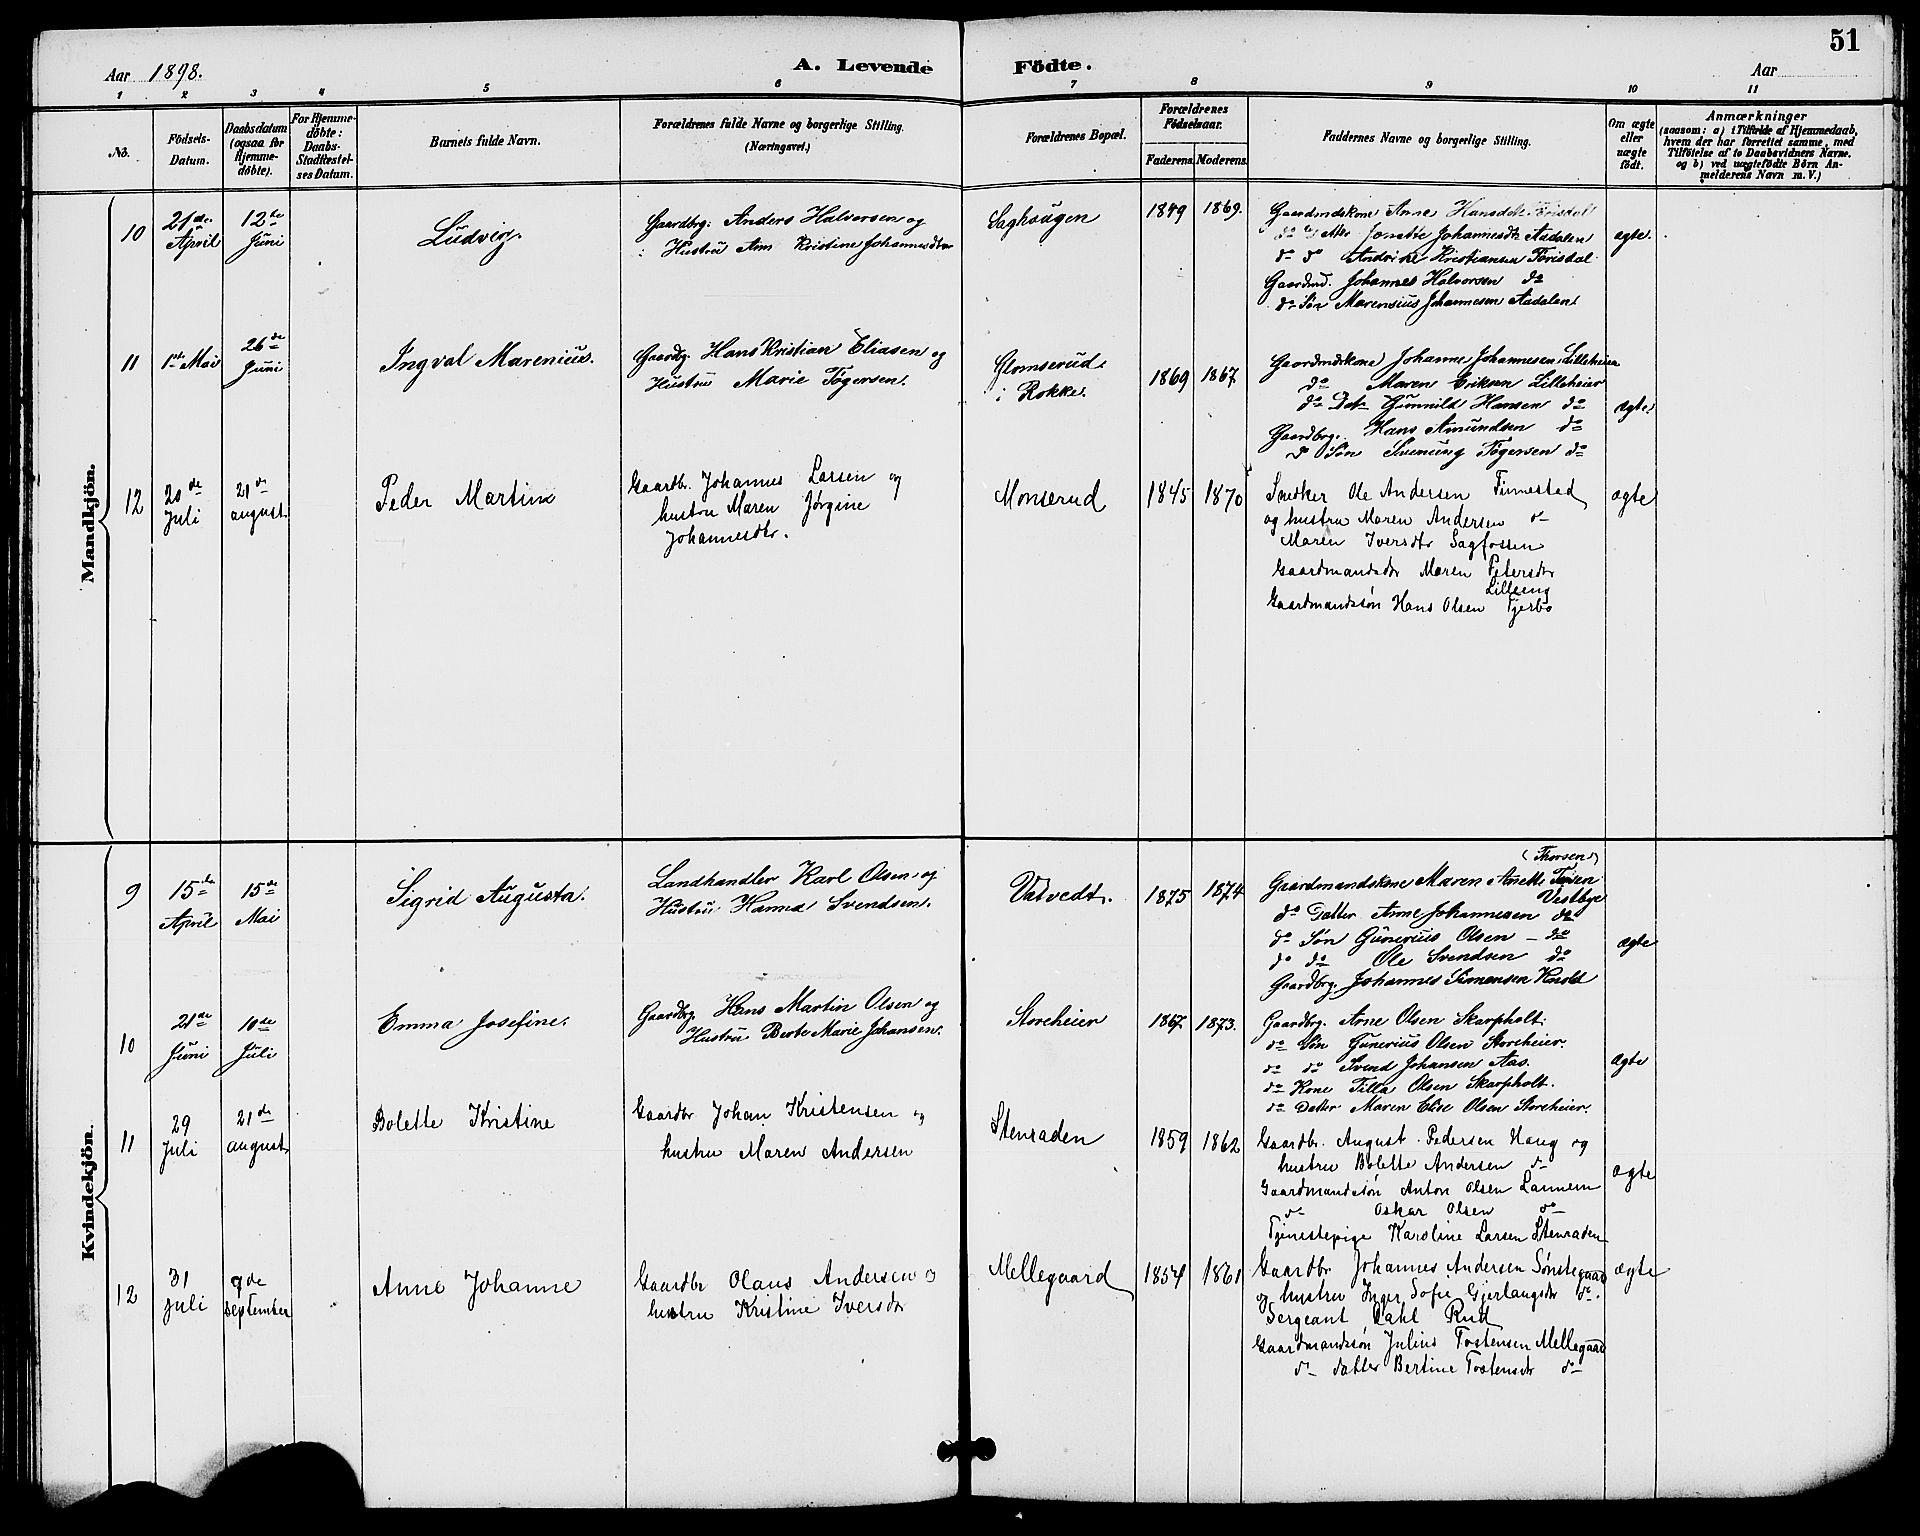 51
Aar 1898.
A. Levende Födte.
Aar
1 2 3 4 5 6 7 8 9 10 11
No.
Födsels-
Datum.
Daabsdatum
(ogsaa for
Hjemme-
døbte).
For Hjemme-
døbte:
Daabs-
Stadfæstel-
ses Datum.
Barnets fulde Navn.
Forældrenes fulde Navne og borgerlige Stilling.
(Næringsvei.)
Forældrenes Bopæl.
Forældrenes
Födselsaar.
Faderens. Moderens.
Faddernes Navne og borgerlige Stilling.
Om ægte
eller
uægte
født.
Anmærkninger
(saasom: a) i Tilfælde af Hjemmedaab,
hvem der har forrettet samme, med
Tilföielse af to Daabsvidners Navne.
og b) ved uægtefödte Börn An-
melderens Navn m. V.)
Mandkjön.
10
21de
April
12te
Juni
Ludvig.
Gaardbrg: Anders Halvorsen og
Hustru Kristine Johannesdtr
Saghaugen
1849 1869.
Gaardmdskone Anne Hansdtr
Jonette Johannesdtr Aadalen
do do Andrine Kristiansen Torisdal
Gaardmd. Johannes Halvorsen do
do Søn Marensius Johannesen Aadalen
ægte.
11
1ste Mai
26de
Juni
Ingval Marenius.
Gaardbg. Hans Kristian Eliasen og
Hustru Marie Togersen.
Glomserud
i Rokke.
1869 1867
Gaardmdskone Johanne Johannesen Lilleheier
do Maren Eriksen Lilleheier
do Dtr Gunnild Hansen do
Gaardbrg. Hans Amundsen do
do Søn Svenung Togersen do
ægte
12
20de
Juli
21de
august
Peder Martin
Gaardbr. Johannes Larsen og
hustru Maren Jørgine
Johannesdtr.
Monserud
1845 1870
Snedker Ole Andersen Finnestad
og hustru Maren Andersen do
Maren Iversdtr Sagfossen
Gaardmandsdtr Maren Petersdtr
Lilleeng
Gaardmandssøn Hans Olsen Tjerbo
ægte
Kvindekjön.
9
15de
April
15de
Mai
Sigrid Augusta.
Landhandler Karl Olsen og
Hustru Hanna Svendsen.
Vatvedt.
1875 1874
(Thorsen)
Gaardmandskone Maren Anette
Vestbye
do Datter Anne Johannesen do
do Søn Gunerius Olsen – do
do do Ole Svendsen do
Gaardbrg. Johannes Simensen Knold
ægte
10
21de
Juni
10de
Juli
Emma Josefine.
Gaardbg. Hans Martin Olsen og
Hustru Berte Marie Johansen.
Storeheier
1867 1873.
Gaardbrg. Arne Olsen Skarpholt.
do Søn Gunerius Olsen Storeheier.
do do Svend Johansen Aas.
do Kone Tilla Olsen Skarpholt.
do Datter Maren Elise Olsen Storeheier.
ægte
11
29
Juli
21de
august
Bolette Kristine
Gaardbr Johan Kristensen og
hustru Maren Andersen
Stenraden
1859 1862
Gaardbr. August Pedersen Haug og
hustru Bolette Andersen do
Gaardmandssøn Anton Olsen Lannem
do Oskar Olsen do
Tjenestepige Karoline Larsen Stenraden
ægte
12
31
Juli
september
Anne Johanne
Gaardbr Olaus Andersen og
hustru Kristine Iversdtr
Mellegaard
1854 1861
Gaardbr Johannes Andersen Sønstegaard
og hustru Inger Sofie Gjerlaugsdtr do.
Sergeant Dahl Rud
Gaardmandssøn Julius Tostensen Mellegaard
do datter Bertine Tostensdtr do
ægte